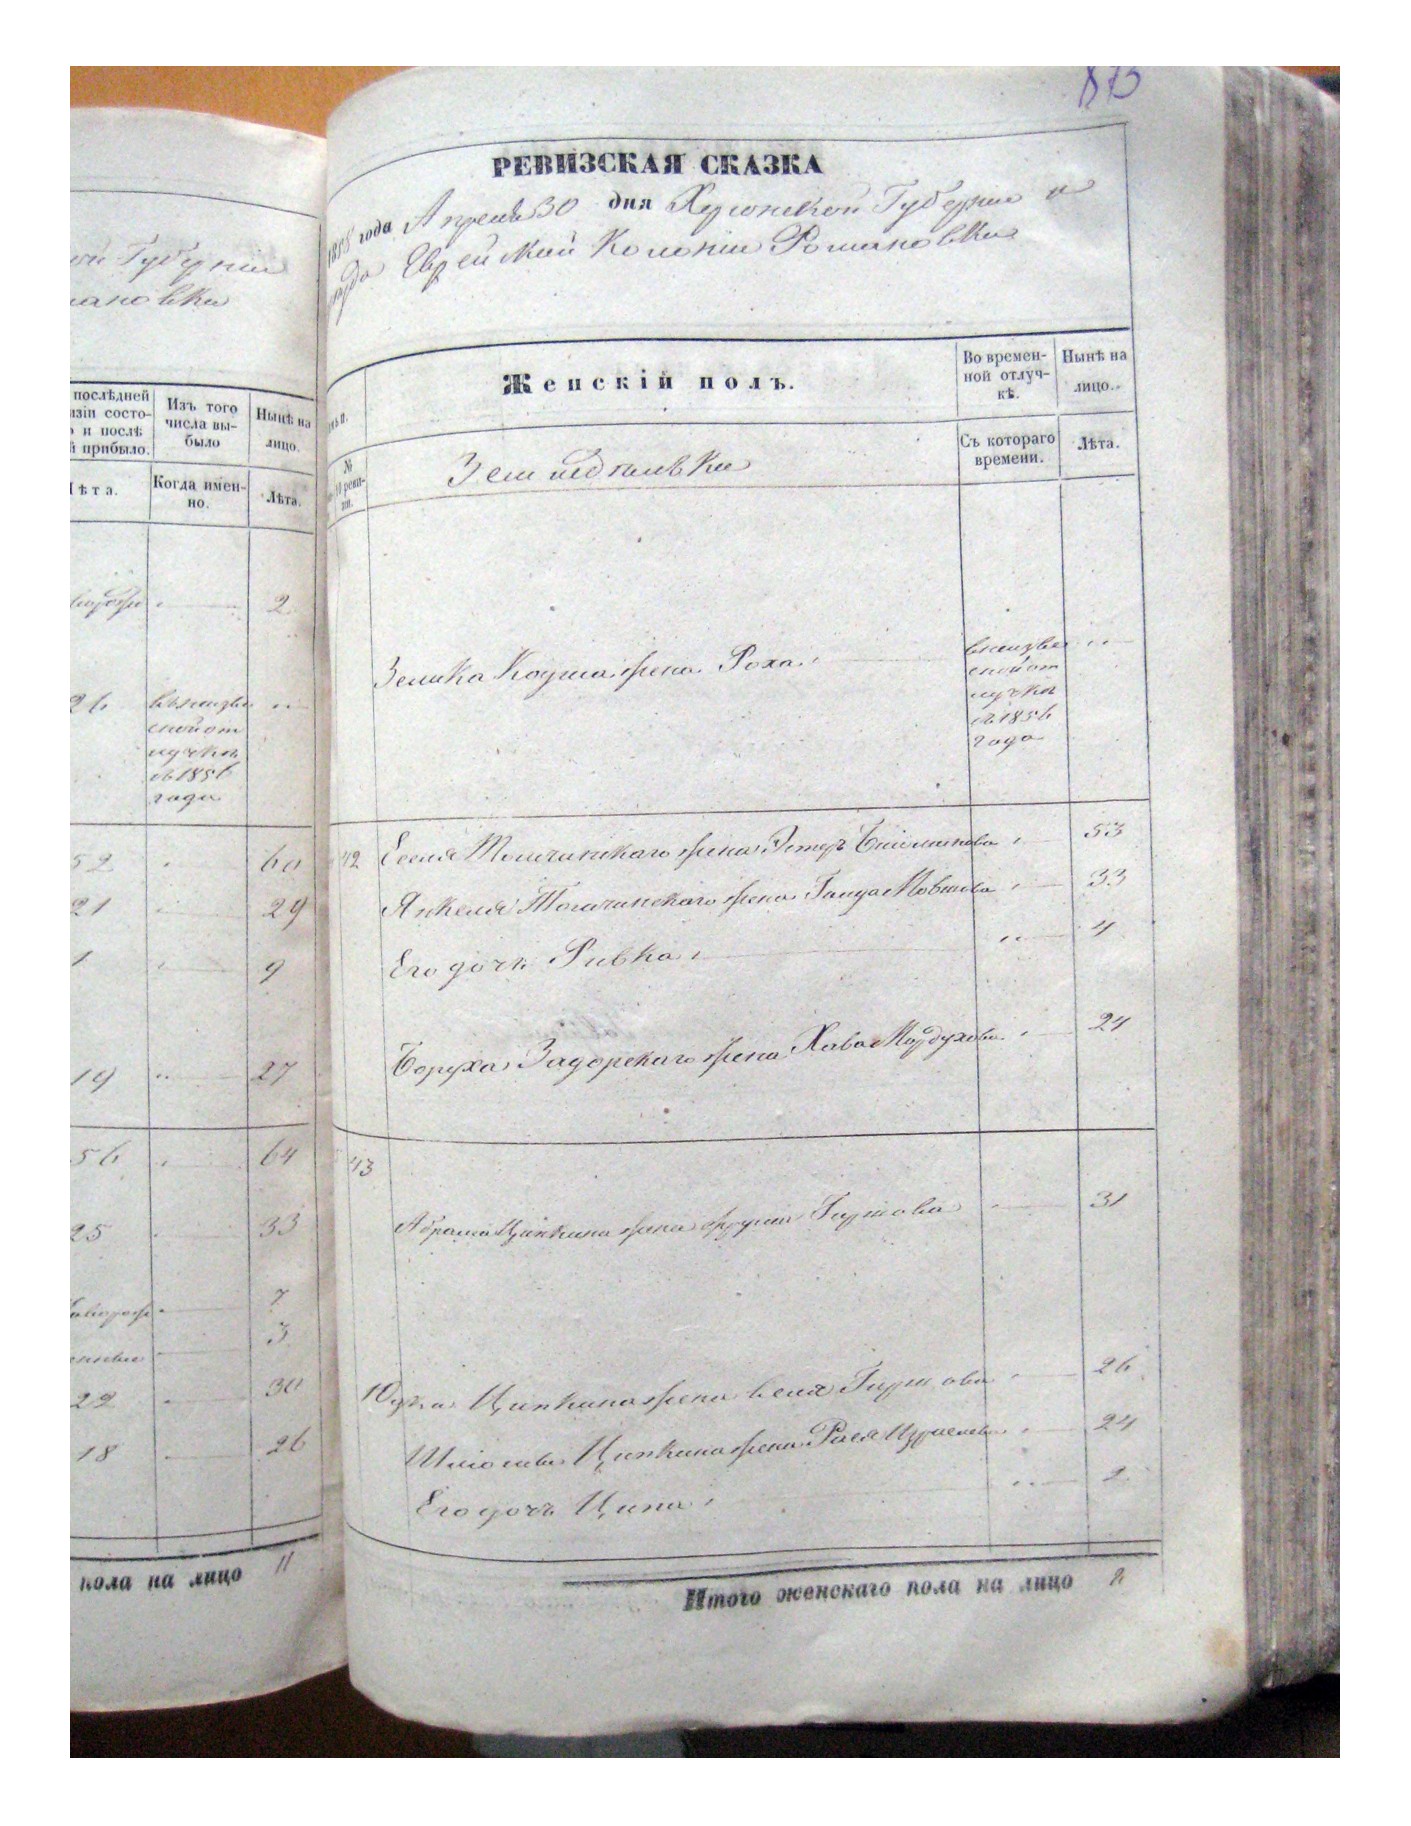 873
ой Губерніи
мановки
послѣдней
изіи состо-
о и послѣ
й прибыло.
Изъ того
числа вы-
было
Нынѣ на
лицо.
Лѣта.
Когда имен-
но.
Лѣта.
2
26
въ неизвѣ
стной от
лучкѣ
съ 1856
года
52 60
21 29
1 9
19 27
56 64
25 33
7
3
22 30
18 26
пола на лицо 11
РЕВИЗСКАЯ СКАЗКА
1858 года Апреля 30 дня Херсонской Губерніи и
уѣзда Еврейской Колоніи Романовки
Женскій полъ.
Во времен-
ной отлуч-
кѣ.
Нынѣ на
лицо.
№
10 реви-
зіи.
Земледѣлики
Съ котораго
времени.
Лѣта.
Зелика Коуша жена Роха
в неизвѣ
стной от
лучкѣ
съ 1856
года
42 Еселя Толчинскаго жена Эстеръ 53
Янкеля Толчинскаго жена Мовшова 33
Его дочь Ривка 4
Боруха Задорскаго жена Хава Мордухова 24
43
Абрама Ципкина жена Гиршова 31
Юдки Ципкина жена Беля Гиршова 26
Ципкина жена Рася Израелева 24
Его дочь Ципа 2
Итого женскаго пола на лицо 8